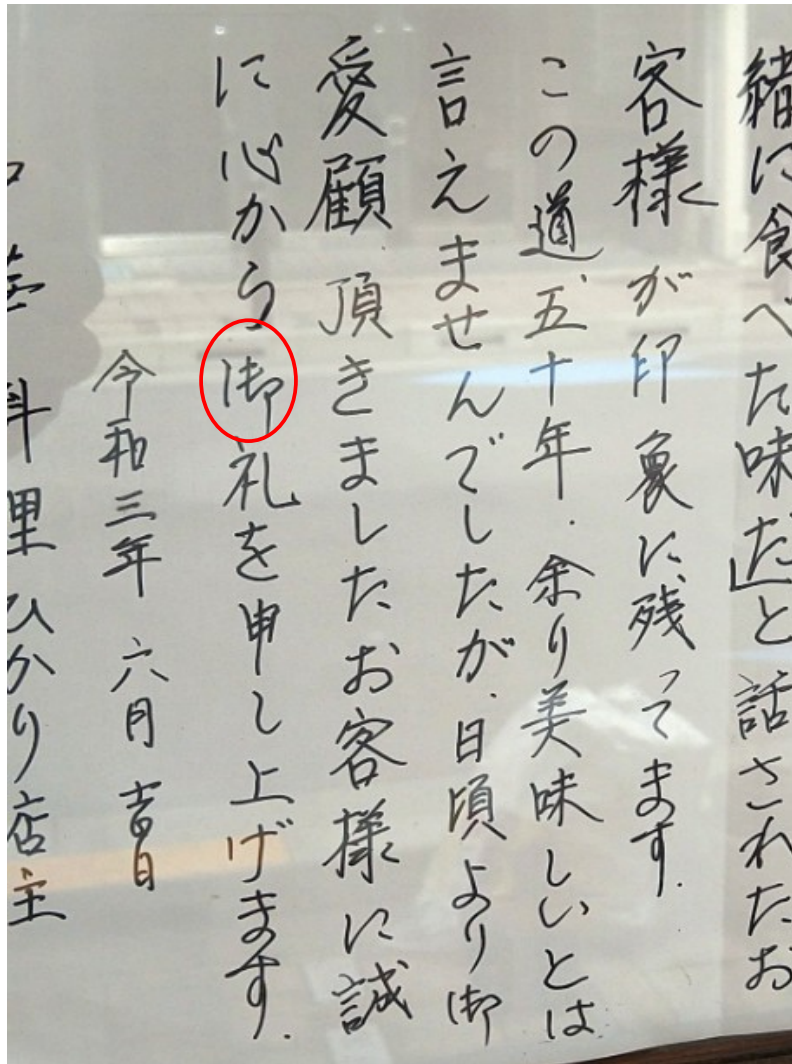 緒に食べた味だ」と話されたお
客様が印象に残ってます.
この道、五十年.余り美味しいとは
言えませんでしたが、日頃より御
愛顧頂きましたお客様に誠
に心から御礼を申し上げます.
令和三年 六月 吉日
料理ひかり店主